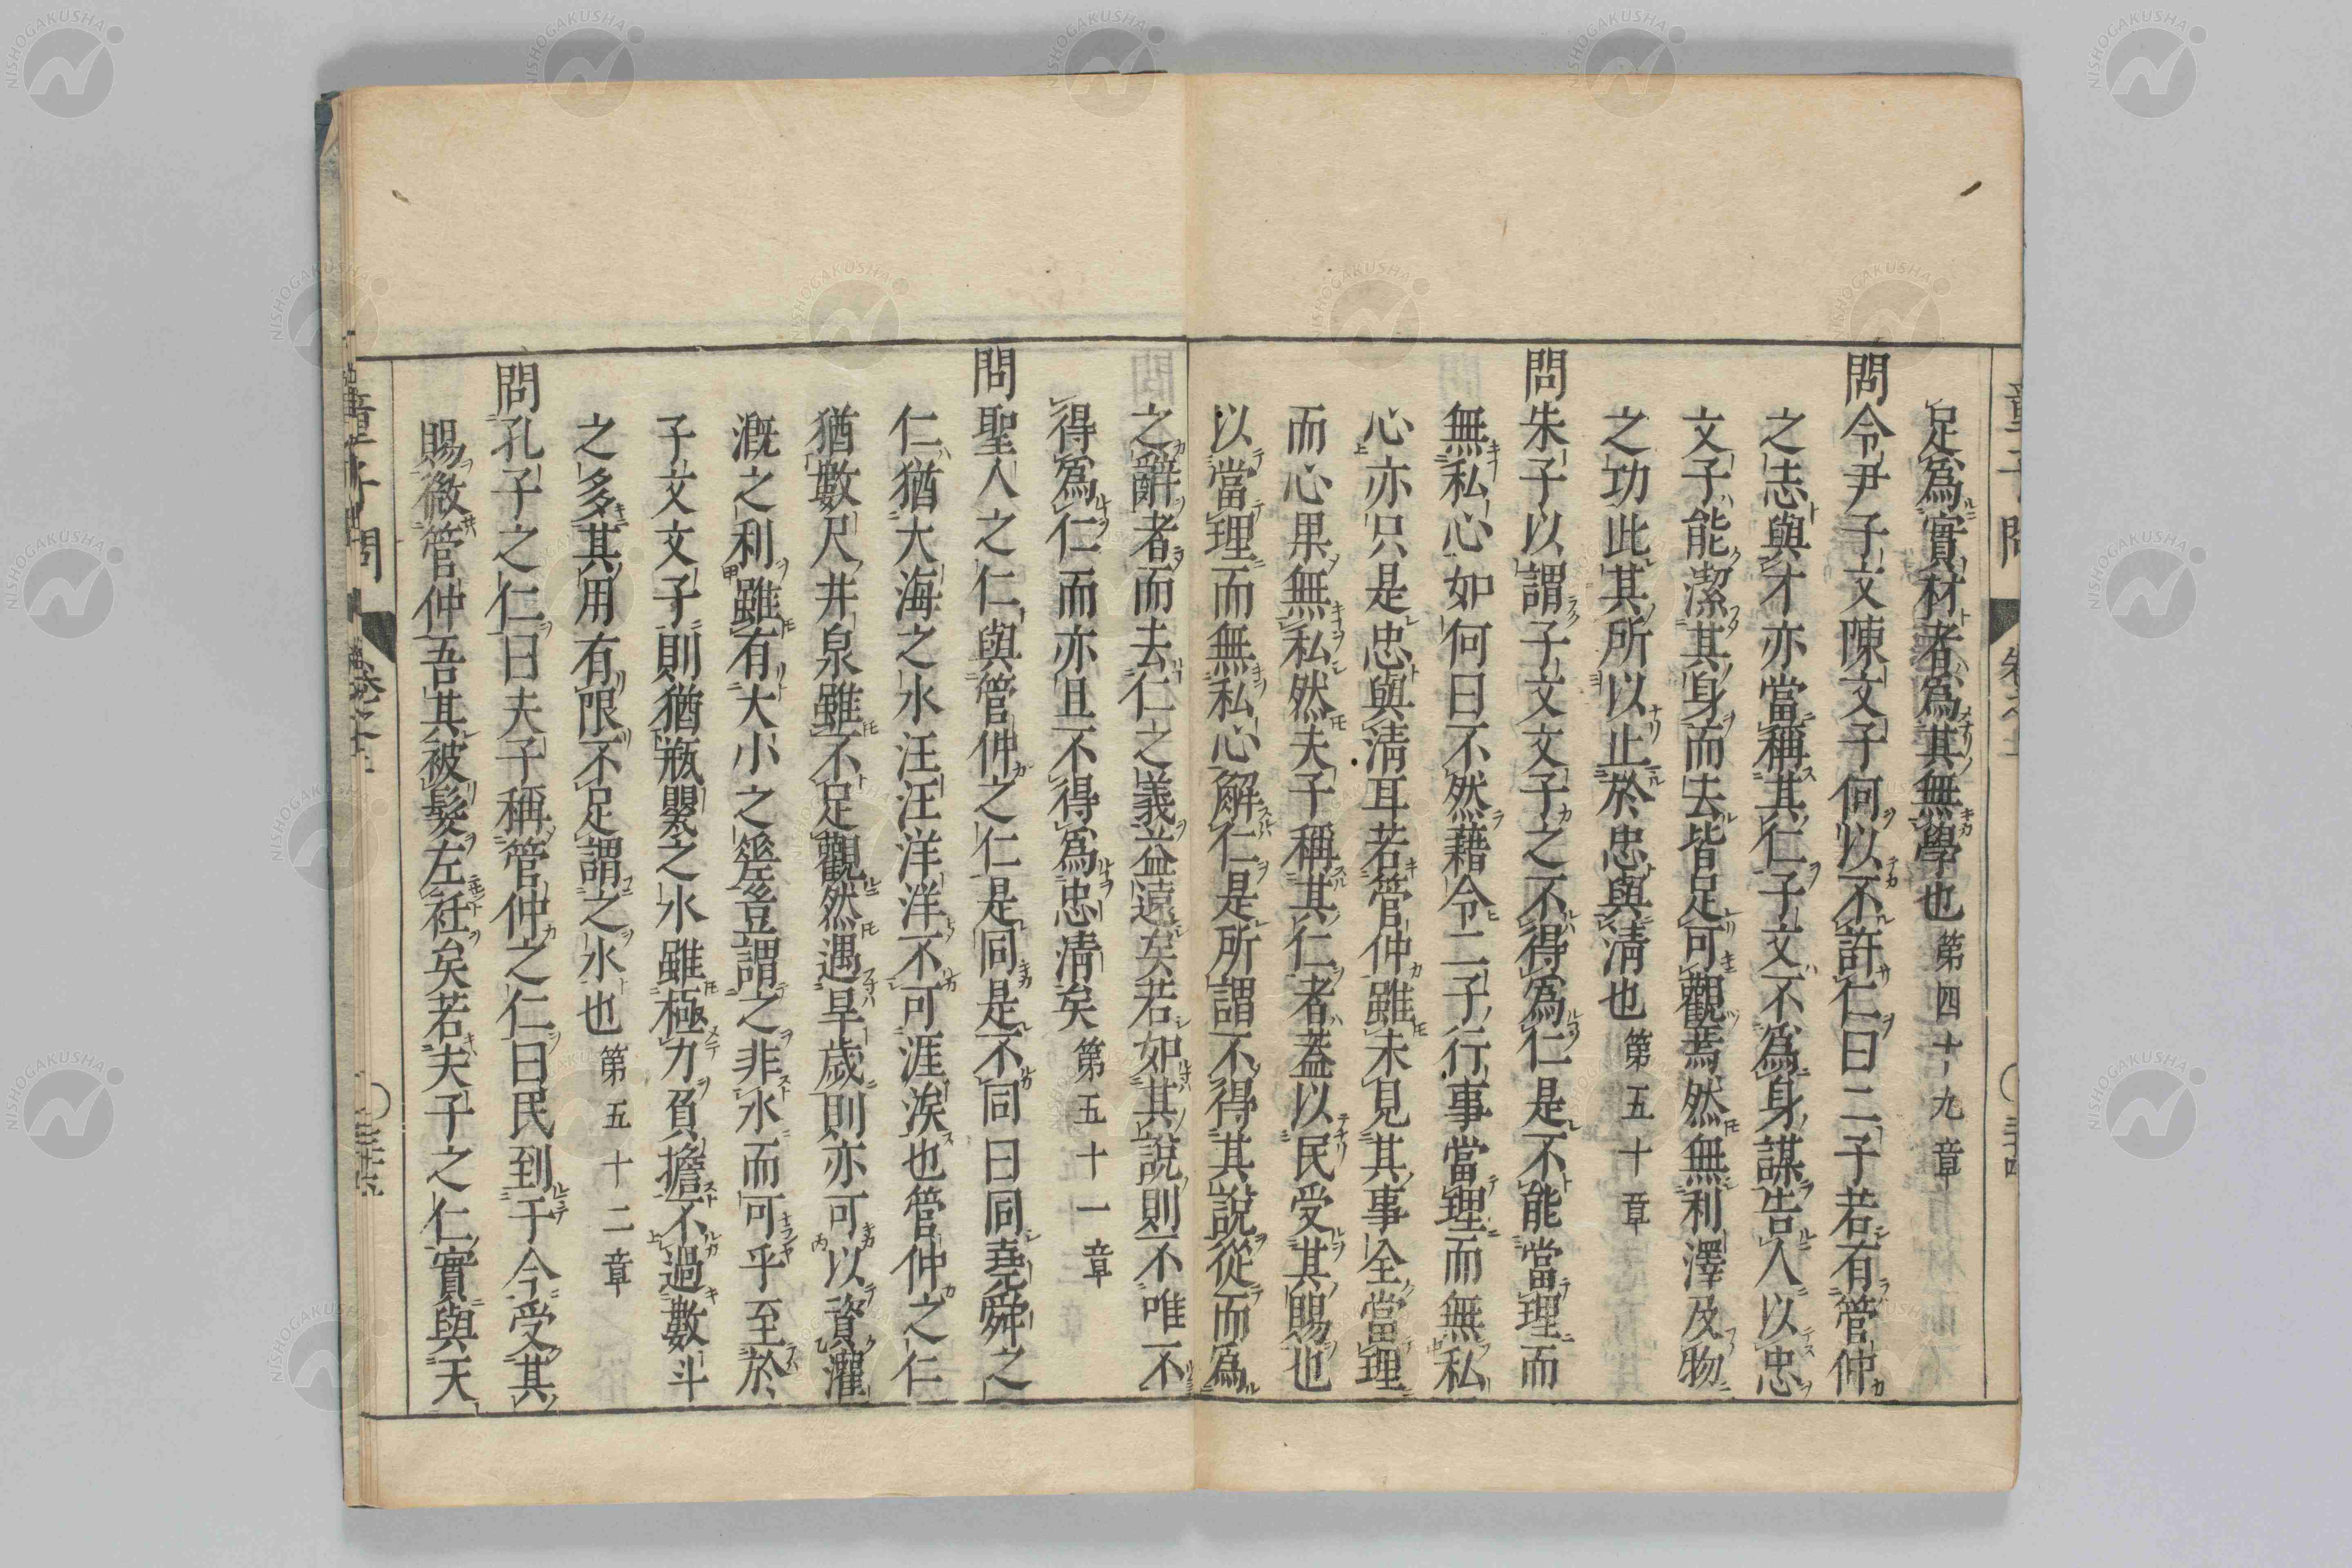 足爲實材者爲其無學也 第四十九章
問令尹子文陳文子何以不許仁曰二子若有管仲
之志與才亦當稱其仁子文不爲身謀告人以忠
文子能潔其身而去皆足可觀焉然無利澤及物
之功此其所以止於忠與淸也 第五十章
問朱子以謂子文文子之不得爲仁是不能當理而
無私心如何曰不然藉令二子行事當理而無私
心亦只是忠與淸耳若管仲雖未見其事全當理
而心果無私然夫子稱其仁者蓋以民受其賜也
以當理而無私心解仁是所謂不得其說從而爲
之辭者而去仁之義益遠矣若如其說則不唯不
得爲仁而亦且不得爲忠淸矣 第五十一章
問聖人之仁與管仲之仁是同是不同曰同堯舜之
仁猶大海之水汪汪洋洋不可涯涘也管仲之仁
猶數尺井泉雖不足觀然遇旱歲則亦可以資灌
漑之利雖有大小之差豈謂之非水而可乎至於
子文文子則猶瓶罌之水雖極力負擔不過數斗
之多其用有限不足謂之水也 第五十二章
問孔子之仁曰夫子稱管仲之仁曰民到于今受其
賜微管仲吾其被髮左衽矣若夫子之仁實與天
童子問